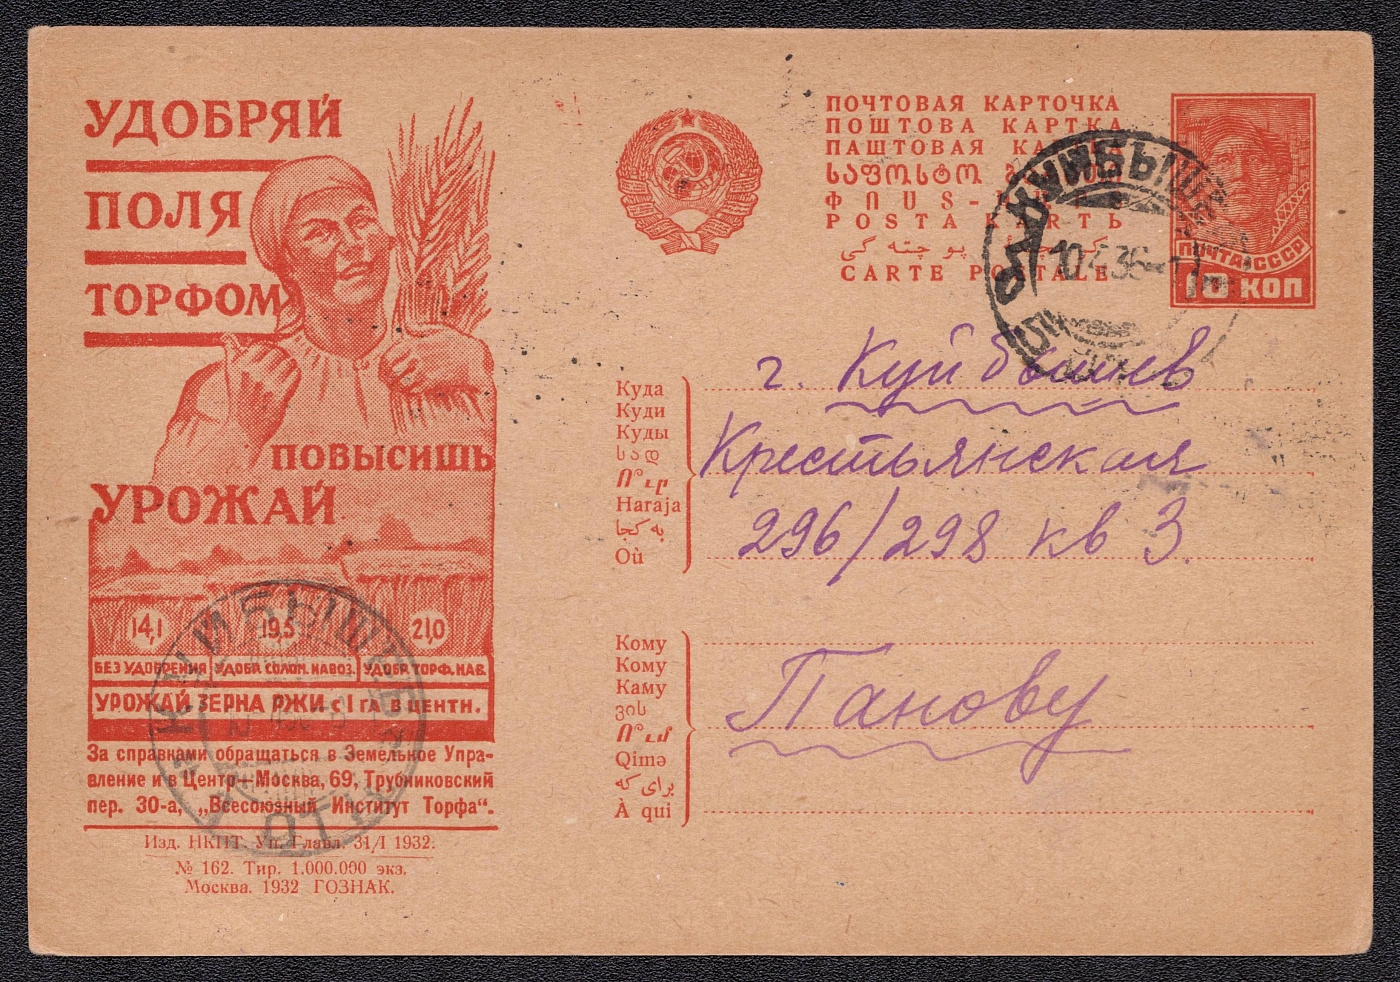 УДОБРЯЙ
ПОЛЯ
ТОРФОМ
ПОВЫСИШЬ
УРОЖАЙ
14,1 19,5 21,0
БЕЗ УДОБРЕНИЯ УДОБР. СОЛОМ. НАВОЗ. УДОБР. ТОРФ. НАВ.
УРОЖАЙ ЗЕРНА РЖИ с 1 ГА В ЦЕНТН.
За справками обращаться в Земельное Упра-
вление и в Центр—Москва, 69, Трубниковский
пер. 30-а, „Всесоюзный Институт Торфа“.
Изд. НКПТ. Уп. Главл. 31/I 1932.
№ 162. Тир. 1.000.000 экз.
Москва. 1932 ГОЗНАК.
ПОЧТОВАЯ КАРТОЧКА
ПОШТОВА КАРТКА
ПАШТОВАЯ КАРТКА
ᲡᲐᲤᲝᲡᲢᲝ
ՓՈՍՏ-
POSTA KARTЬ
CARTE POSTALE
ПОЧТА СССР
10 КОП
КУЙБЫШЕВ
10.4.36
Куда
Куди
Куды
სად
Ո՞ւր
Haraja
به کجا
Où
г. Куйбышев
Крестьянская
296/298 кв 3.
Кому
Кому
Каму
ვის
Ո՞ւմ
Qimə
برای که
À qui
Панову
КУЙБЫШЕВ